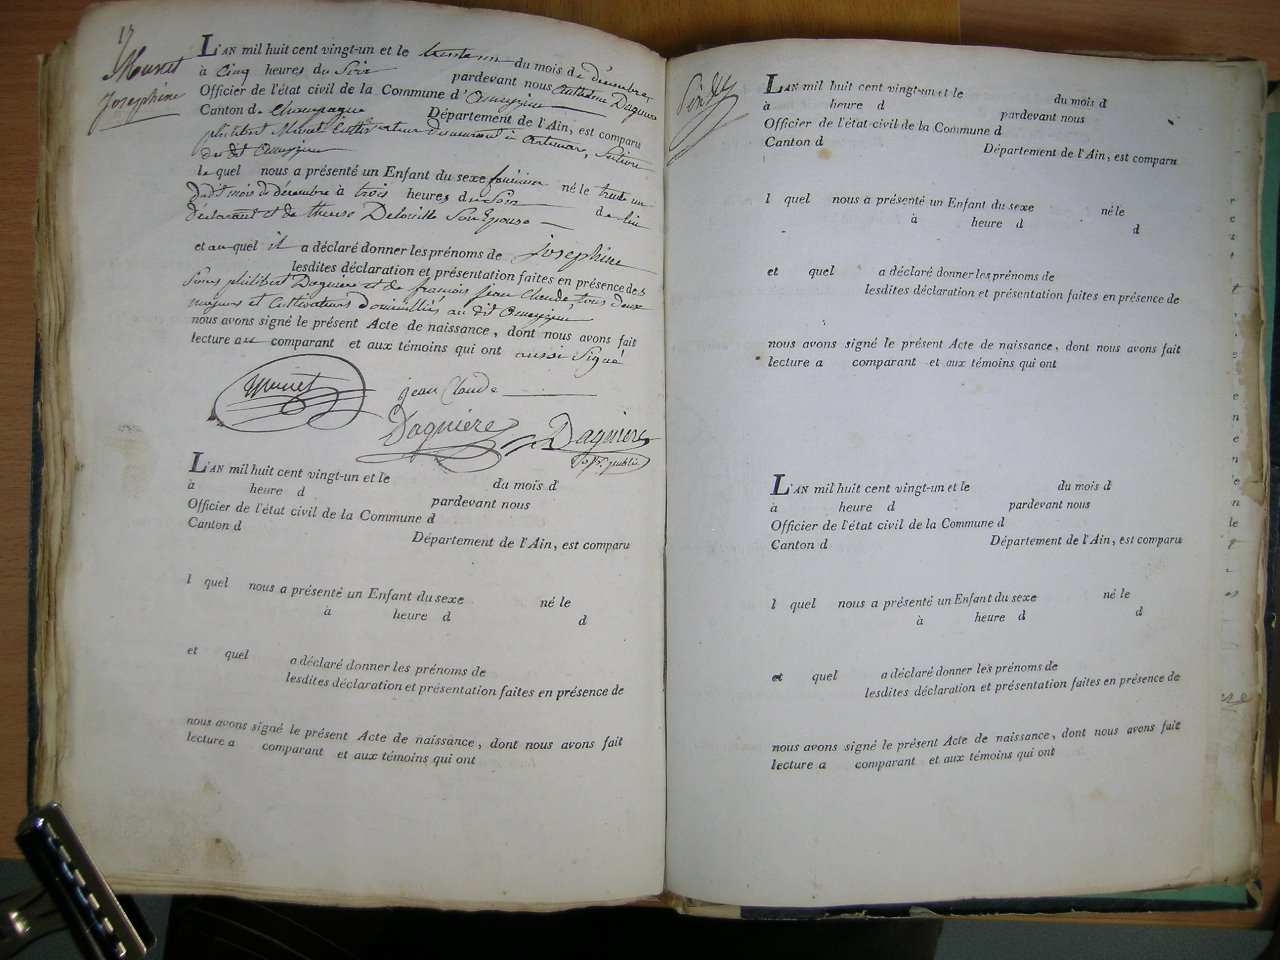 17
Munet
Josephine
L'AN mil huit cent vingt-un et le trente un du mois de décembre,
à Cinq heures du Soir pardevant nous Anthelme Daguiere
Officier de l'état civil de la Commune d'
Canton de Champagne Département de l'Ain, est comparu
philibert Munet Cultivateur demeurant à Artemare, Section
du dit
le quel nous a présenté un Enfant du sexe féminin né le trente un
dudit mois de décembre à trois heures du Soir de lui
déclarant et de Son Epouse
et au quel il a déclaré donner les prénoms de Josephine
lesdites déclaration et présentation faites en présence des
Sieurs philibert Daguiere et de françois jean Claude, tous deux
majeurs et Cultivateurs domiciliés au dit
nous avons signé le présent Acte de naissance, dont nous avons fait
lecture au comparant et aux témoins qui ont aussi Signé
Munet
jean Claude
Daguiere Daguiere
public
L'AN mil huit cent vingt-un et le du mois d
à heure d pardevant nous
Officier de l'état civil de la Commune d
Canton d Département de l'Ain, est comparu
l quel nous a présenté un Enfant du sexe né le
à heure d d
et quel a déclaré donner les prénoms de
lesdites déclaration et présentation faites en présence de
nous avons signé le présent Acte de naissance, dont nous avons fait
lecture a comparant et aux témoins qui ont
L'AN mil huit cent vingt-un et le du mois d
à heure d pardevant nous
Officier de l'état civil de la Commune d
Canton d Département de l'Ain, est comparu
l quel nous a présenté un Enfant du sexe né le
à heure d d
et quel a déclaré donner les prénoms de
lesdites déclaration et présentation faites en présence de
nous avons signé le présent Acte de naissance, dont nous avons fait
lecture a comparant et aux témoins qui ont
L'AN mil huit cent vingt-un et le du mois d
à heure d pardevant nous
Officier de l'état civil de la Commune d
Canton d Département de l'Ain, est comparu
l quel nous a présenté un Enfant du sexe né le
à heure d d
et quel a déclaré donner les prénoms de
lesdites déclaration et présentation faites en présence de
nous avons signé le présent Acte de naissance, dont nous avons fait
lecture a comparant et aux témoins qui ont